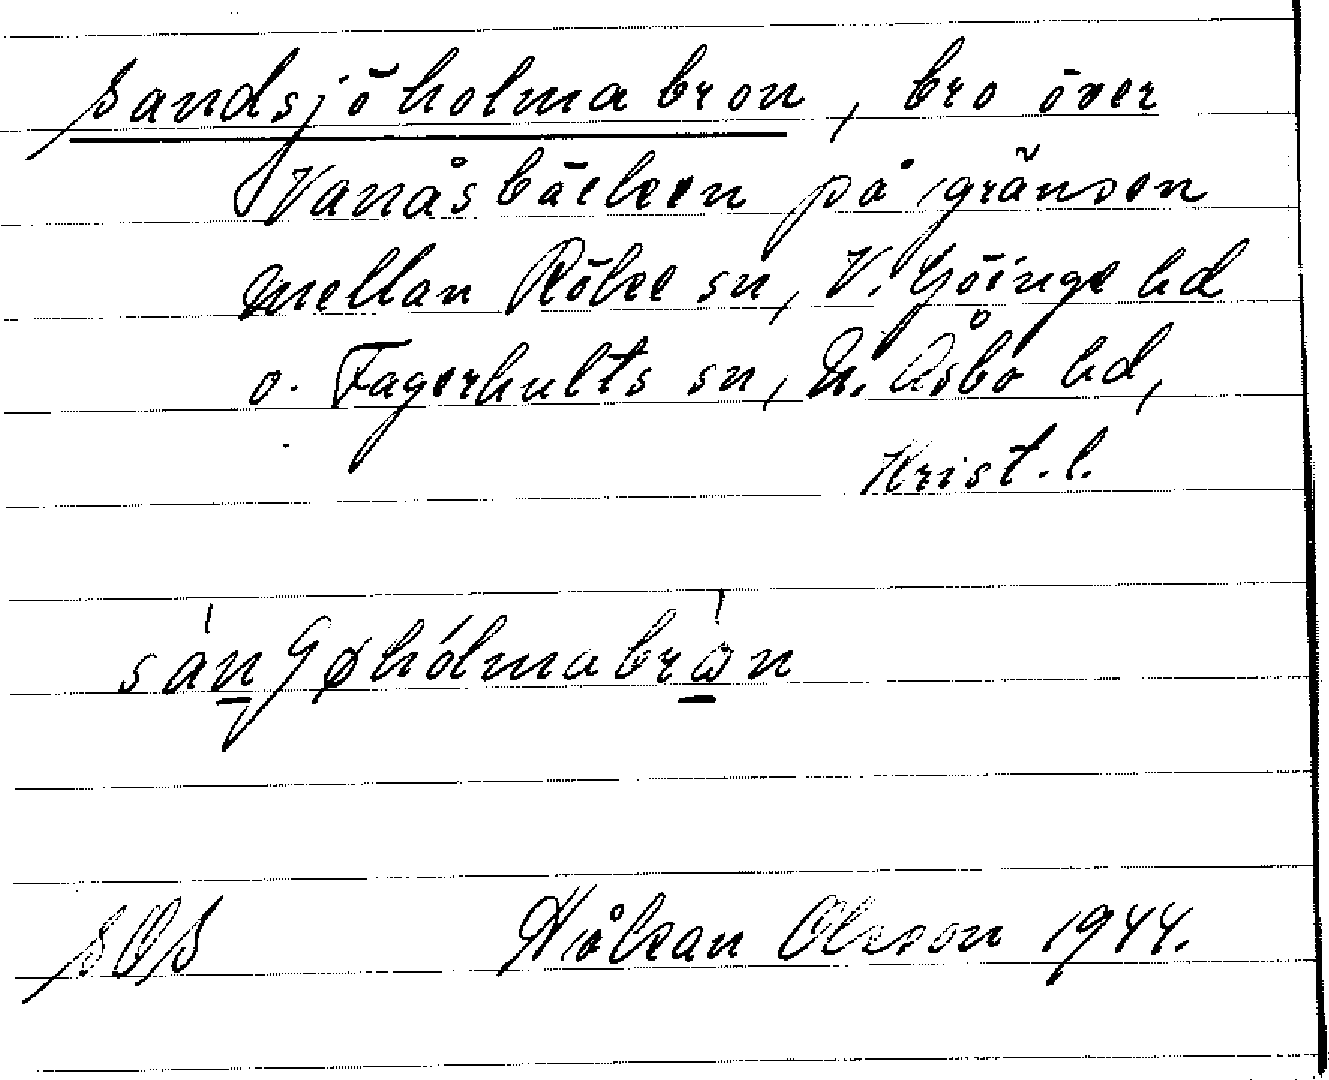 Sandsjöholmabron, bro över
Vanåsbäcken på gränsen
mellan Röke sn, V. Göinge hd
o. Fagerhults sn, N. Åsbo hd,
Krist. l.
SOS Håkan Olsson 1944.